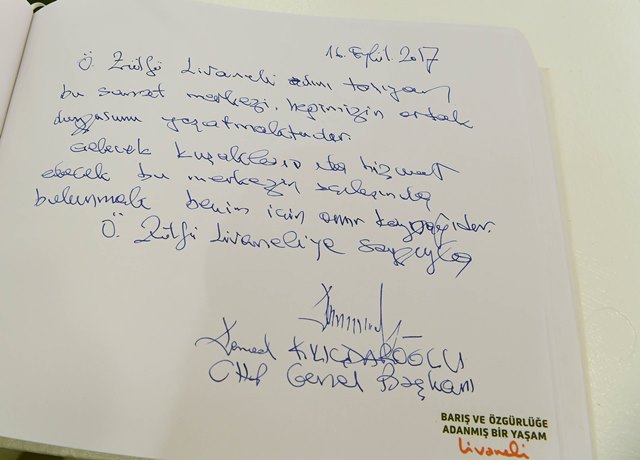 16. Eylül. 2017
Ö. Zülfü Livaneli adını taşıyan
bu sanat merkezi, hepimizin ortak
duygusunu yaşatmaktadır.
Gelecek kuşaklara da hizmet
edecek bu merkezin açılışında
bulunmak benim için onur kaynağıdır.
Ö. Zülfü Livaneli'ye saygıyla
Kemal KILIÇDAROĞLU
CHP Genel Başkanı
BARIŞ VE ÖZGÜRLÜĞE
ADANMIŞ BİR YAŞAM
Livaneli